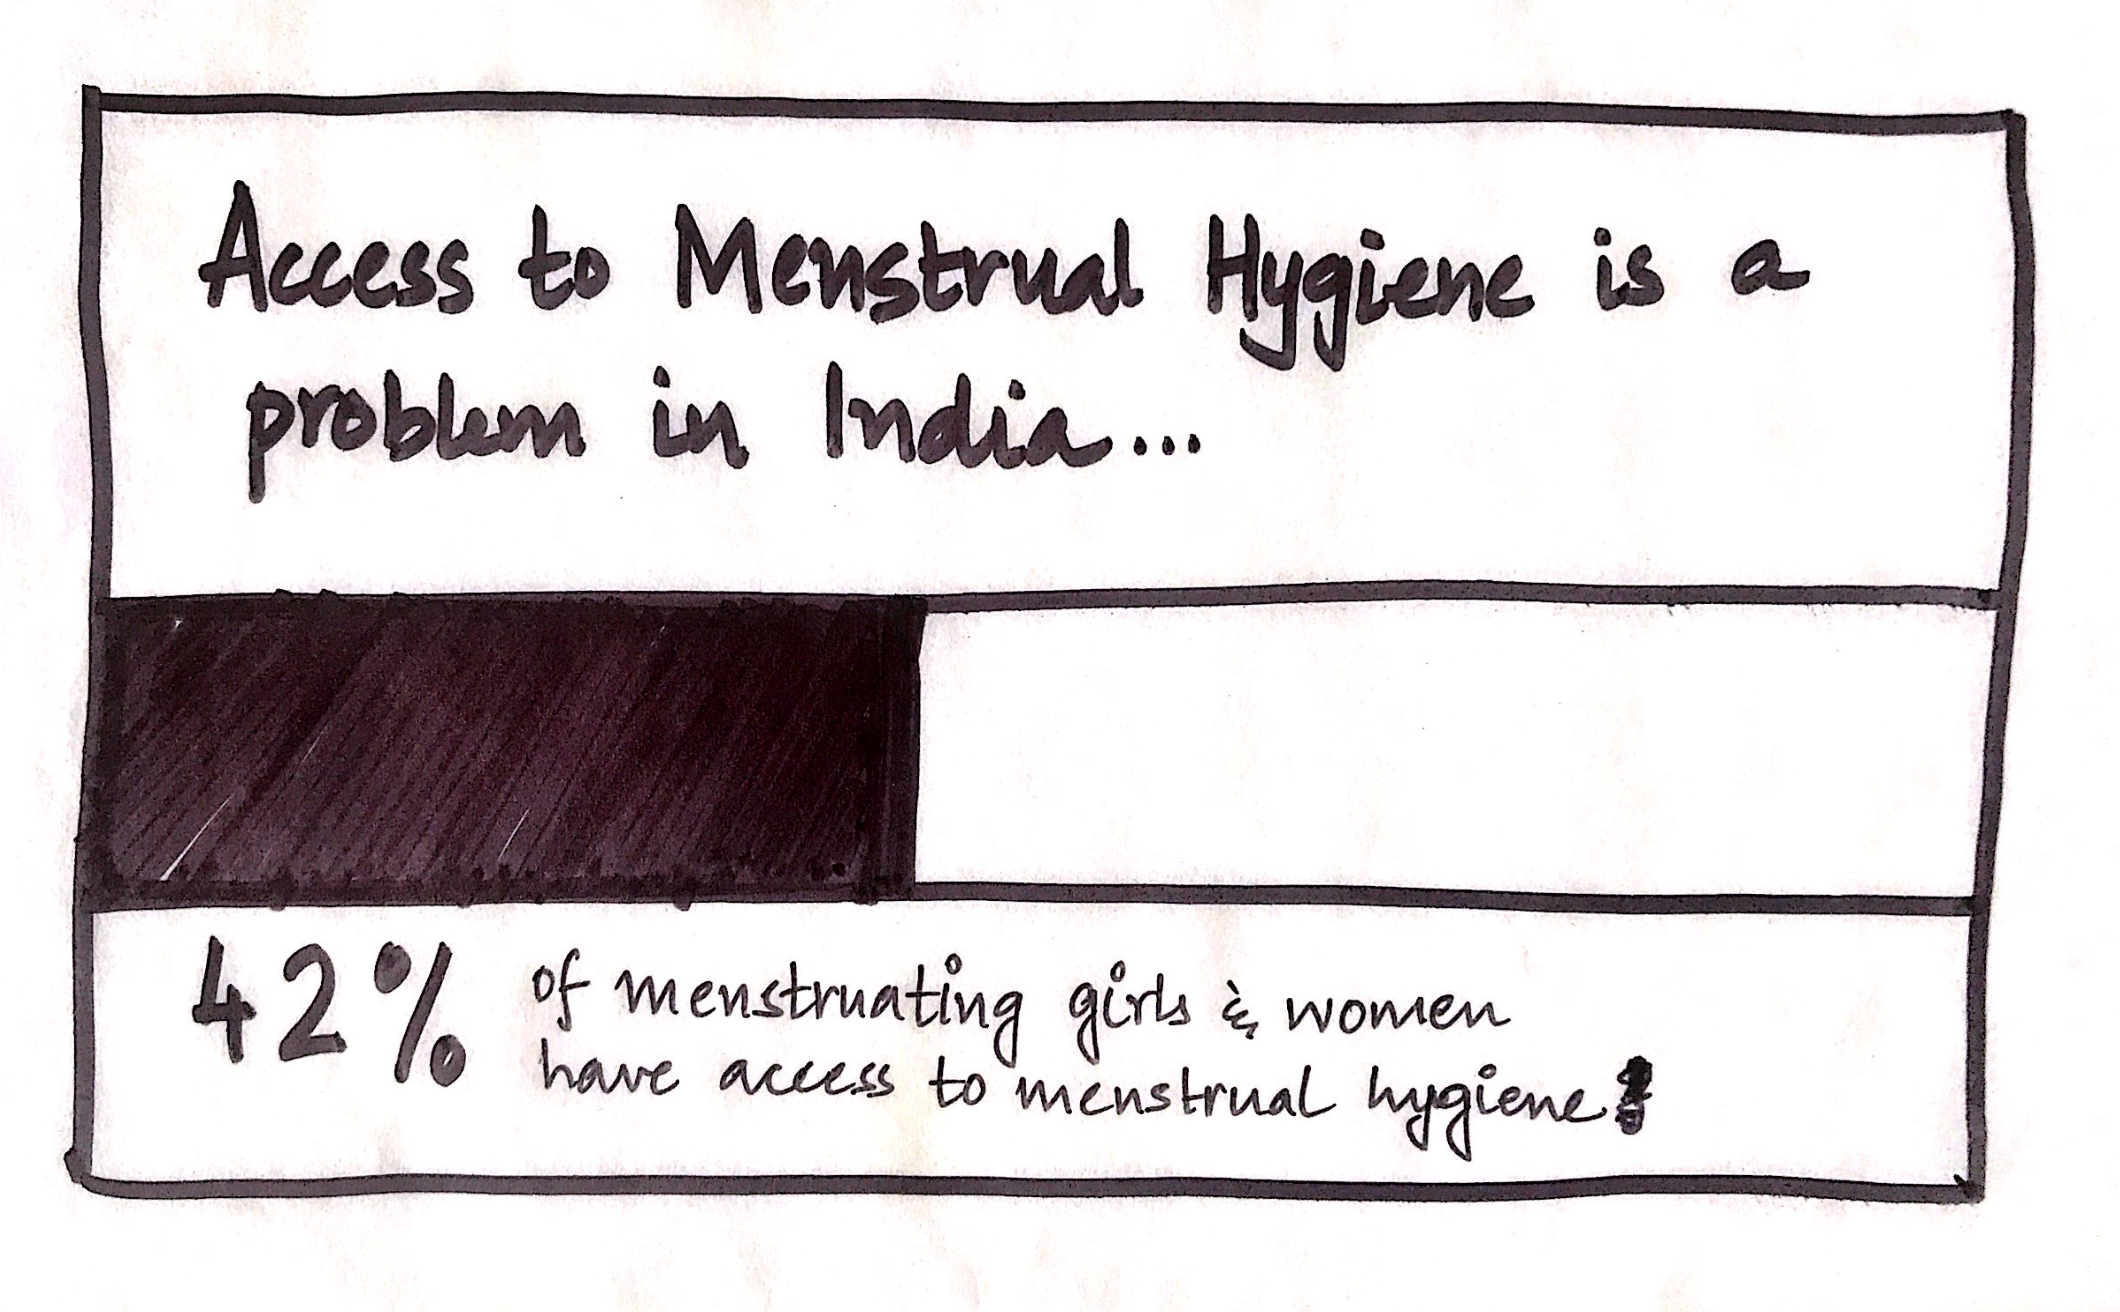 Access to Menstrual Hygiene is a
problem in India...
42% of menstruating girls & women
have access to menstrual hygiene!